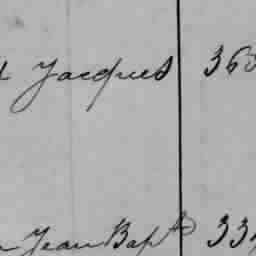 Jacques 363
Jean Bapt 33